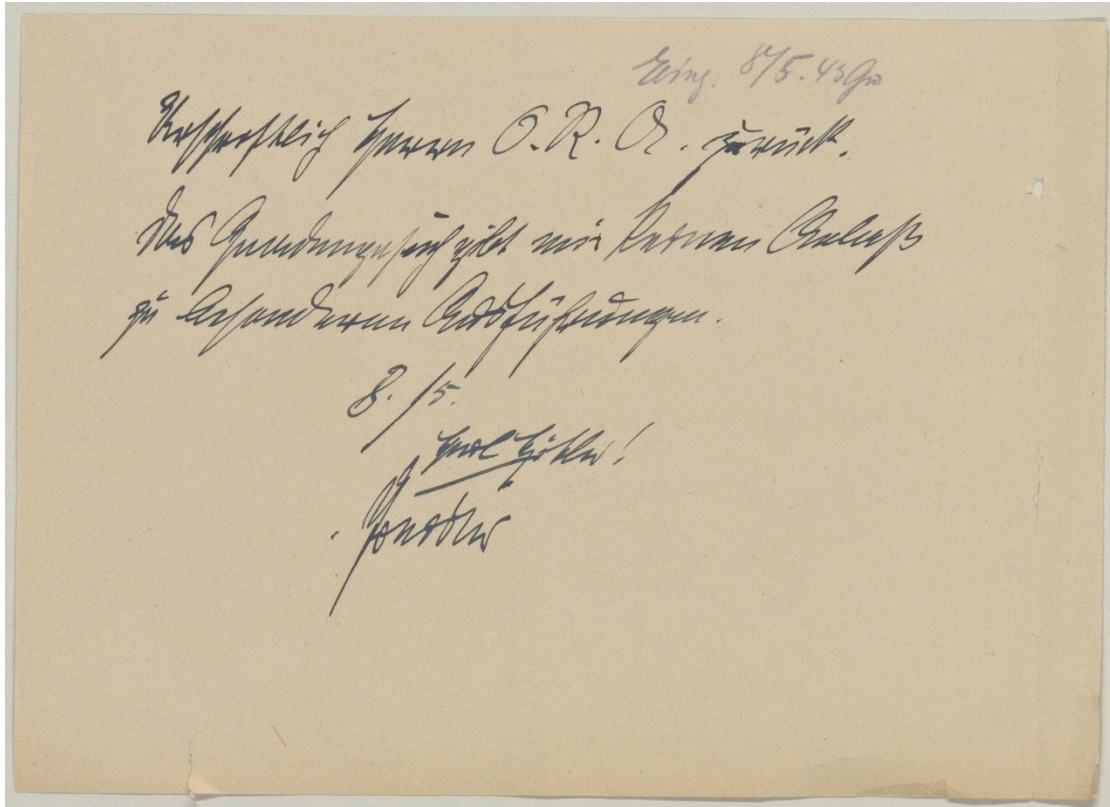 Eing. 8/5. 43
Urschriftlich Herrn O. R. A. zurück.
Das Gnadengesuch gibt mir keinen Anlaß
zu besonderen Ausführungen.
8. /5.
Heil Hitler!